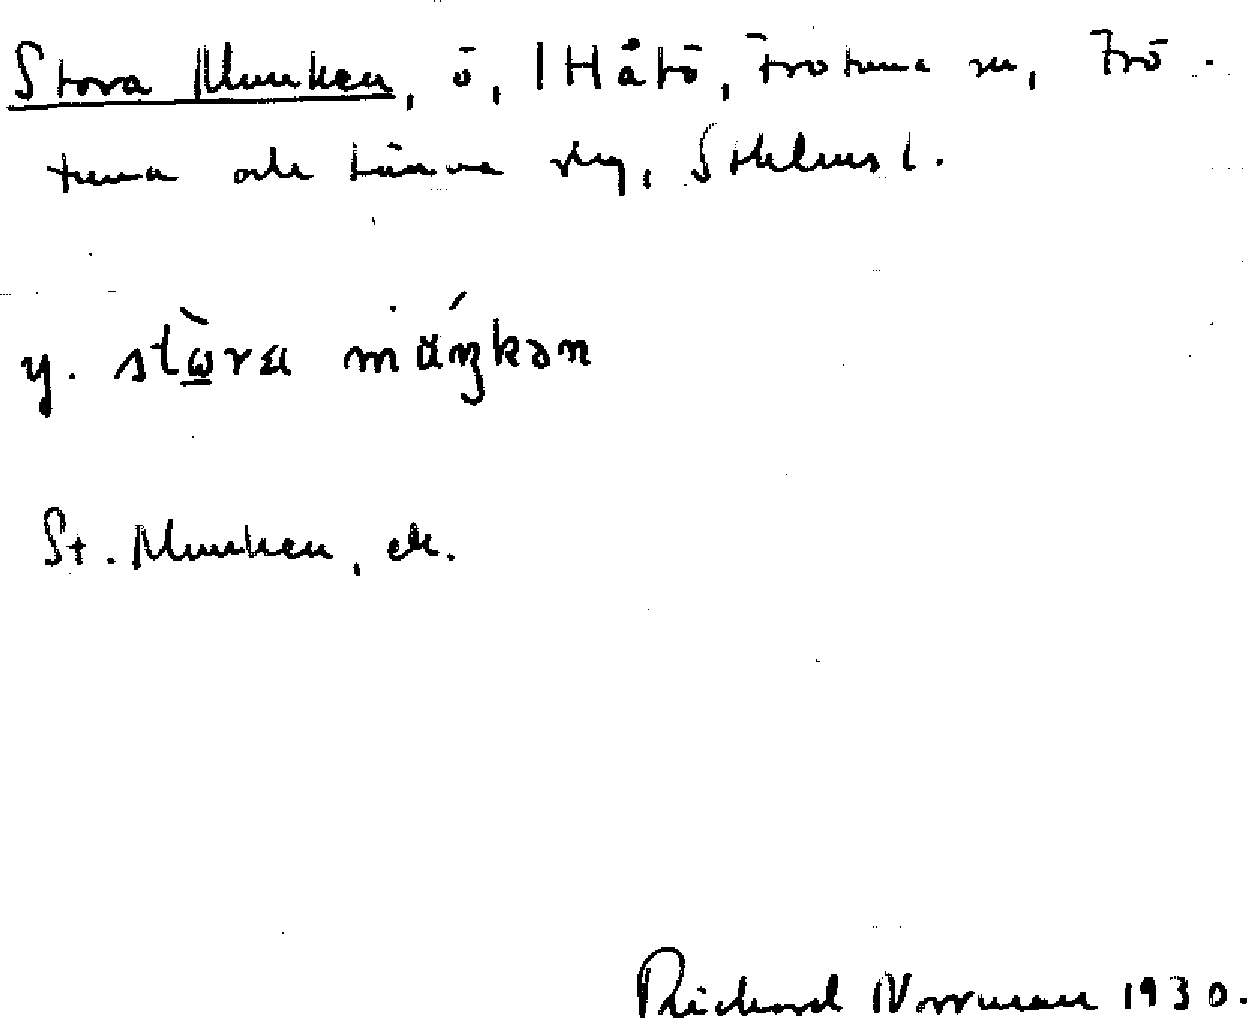 Stora Munken, ö, 1 Håtö, Frötuna sn, Frö-
tuna och Länna skg, Sthlms l.
y. stὼ̲ra mu̇ŋ́kən
St. Munken, ek.
Richard Norrman 1930.